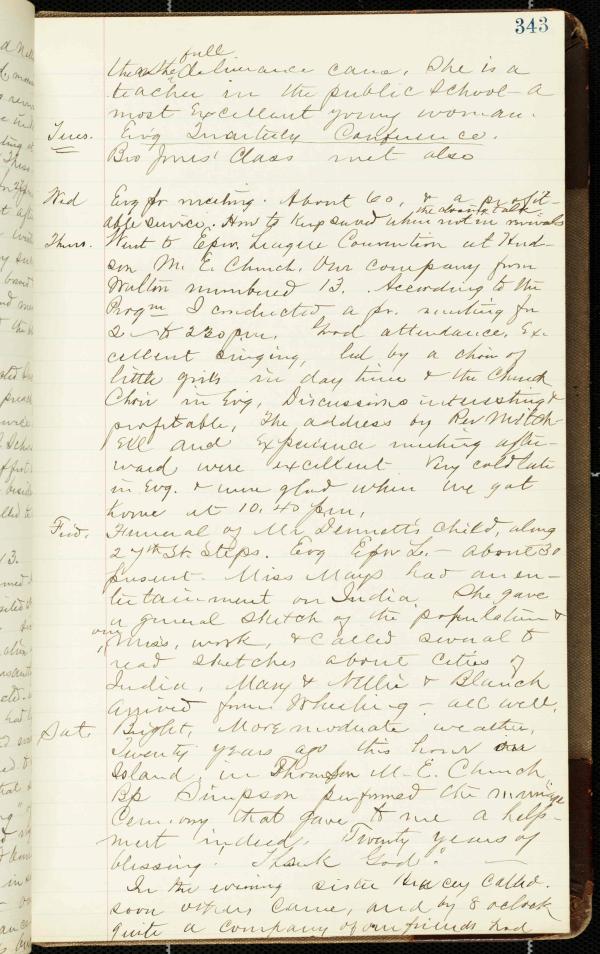 343
then the full deliverance came. She is a
teacher in the public school - a
most excellent young woman.
Tues. Ev'g Quarterly Conference.
Bro Jones' Class met also
Wed Evg pr meeting. About 60, & a profit-
able service. How to keep saved when not in revivals
the closing talk
Thurs. Went to Epw. League Convention at Hud-
son M. E. Church. Our company from
Walton numbered 13. According to the
Progm I conducted a pr. meeting for
2 - to 2 30 p.m. Good attendance. Ex-
cellent singing, led by a choir of
little girls in day time & the Church
Choir in Evg. Discussions interesting &
profitable, The address by Rev Mitch-
ell and Experience meeting after-
ward were excellent. Very cold late
in Evg. & were glad when we got
home at 10.40 p.m.
Frid. Funeral of Mr Dennett's child, along
27th St. Steps. Evg Epw L. - about 30
present. Miss Mays had an en-
tertainment on India. She gave
a general sketch of the population &
our Miss. work, & called several to
read sketches about cities of
India, Mary & Nellie & Blanch
arrived from Wheeling - all well.
Sat. Bright, More moderate weather,
Twenty years ago this hour
Island, in Thomson M. E. Church,
Bp Simpson performed the marriage
Cemony that gave to me a help-
meet indeed, Twenty years of
blessing. Thank God".
In the evening sister called.
soon others came, and by 8 oclock
quite a company of our friends had